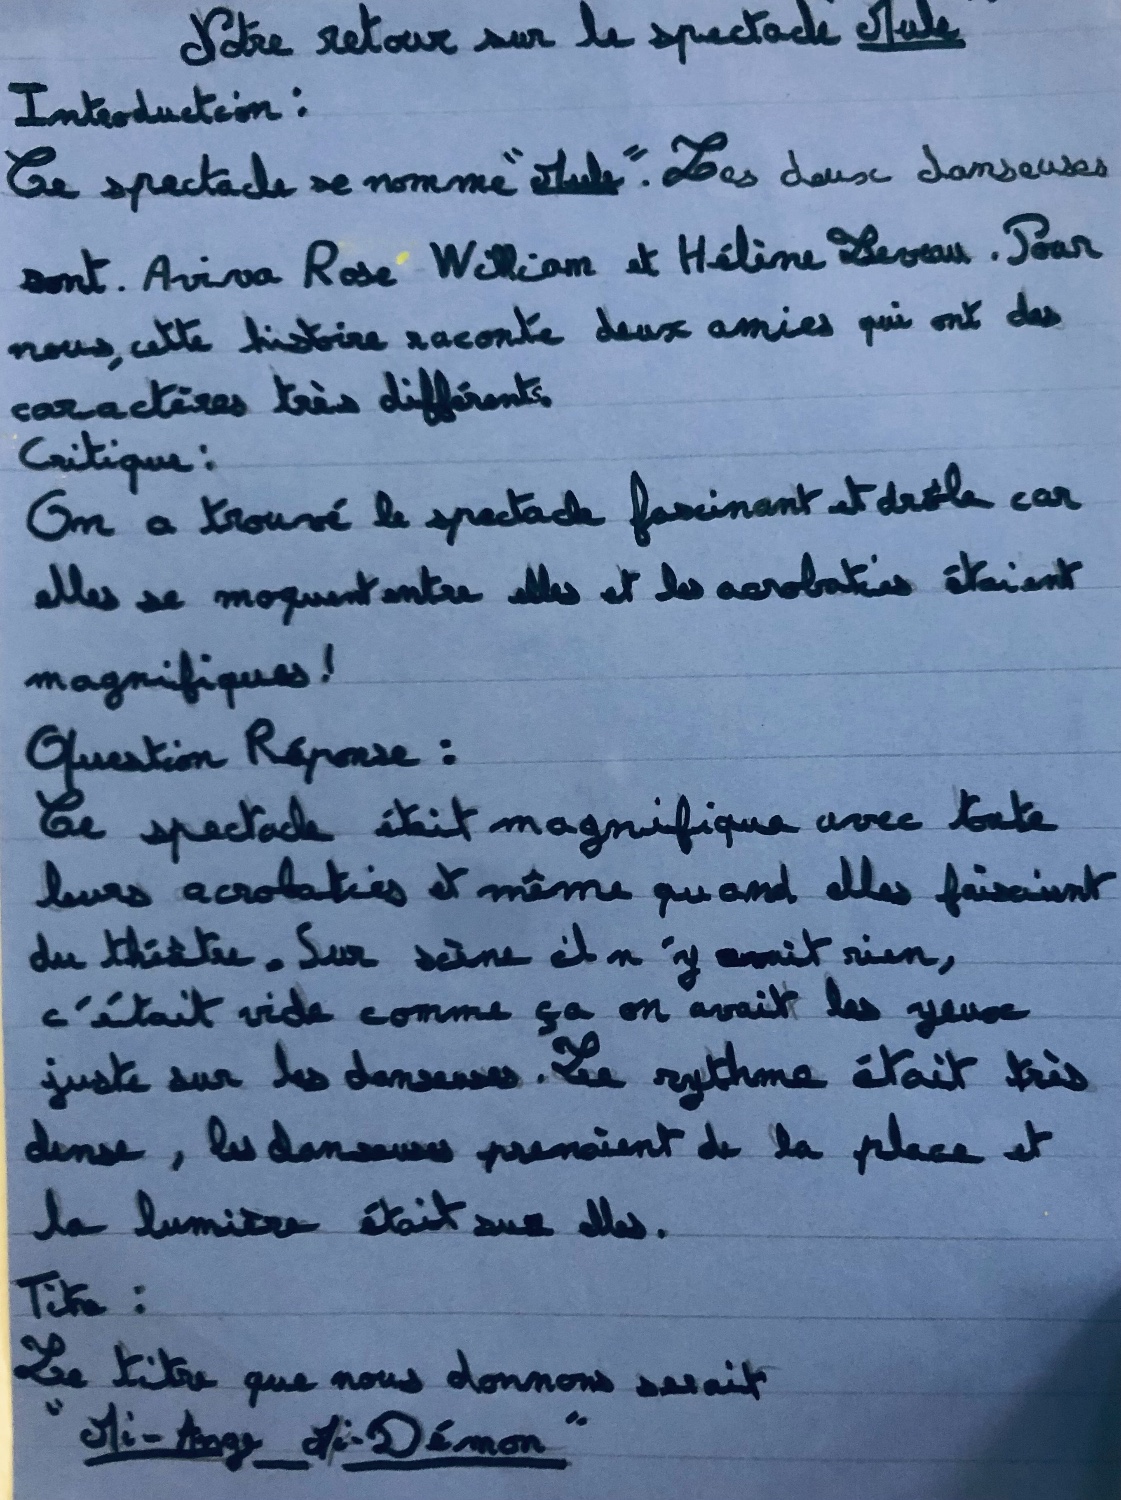 Notre retour sur le spectacle Mule
Introduction :
Ce spectacle se nomme "Mule". Les deux danseuses
sont. Aviva Rose William et Hélène Leveau. Pour
nous, cette histoire raconte deux amies qui ont des
caractères très différents.
Critique :
On a trouvé le spectacle fascinant et drôle car
elles se moquent entre elles et les acrobaties étaient
magnifiques !
Question Réponse :
Ce spectacle était magnifique avec toute
leurs acrobaties et même quand elles faisaient
du théâtre. Sur scène il n'y avait rien,
c'était vide comme ça on avait les yeux
juste sur les danseuses. Le rythme était très
dense, les danseuses prenaient de la place et
la lumière était sur elles.
Titre :
Le titre que nous donnons serait
"Mi-Ange Mi-Démon"